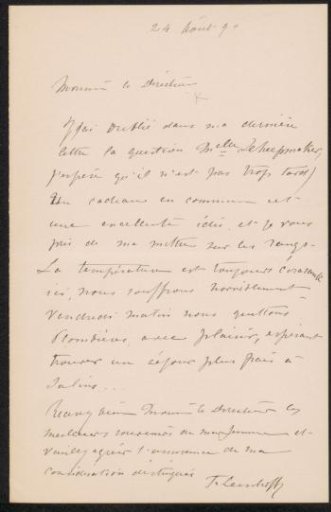 24 Août 9
Monsieur le Directeur
J'ai oublié dans ma dernière
lettre la question Melle Scheepmaker,
j'espère qu'il n'est pas trop tard)
Un cadeau en commun est
une excellente idée, et je vous
prie de me mettre sur les rangs.
La température est toujours écrasante
ici, nous souffrons horriblement
Vendredi matin nous quittons
Plombières, avec plaisir, espérant
trouver un séjour plus frais à
Salins...
Recevez Monsieur le Directeur les
meilleurs souvenirs de ma femme et
veuillez agréer l'assurance de ma
considération distinguée